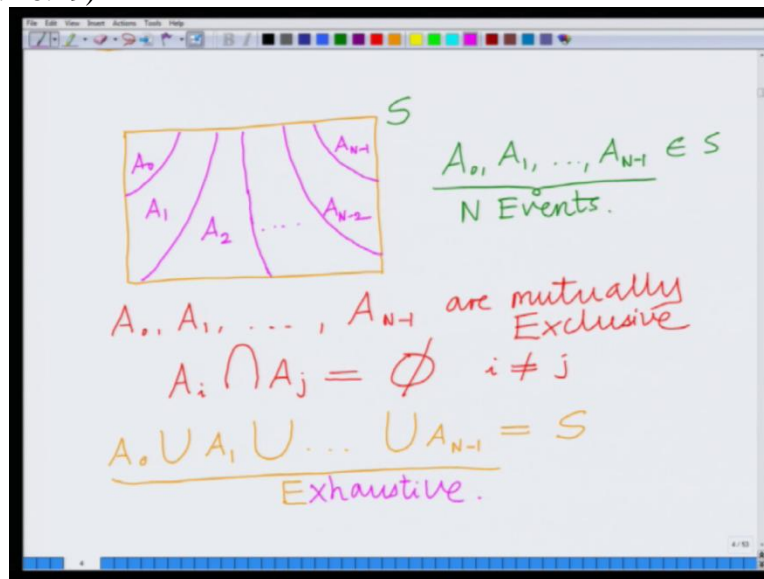 File Edit View Insert Actions Tools Help
B I
S
A₀
A₁
A₂
....
A_{N-2}
A_{N-1}
A₀, A₁, ..., A_{N-1} ∈ S
N Events.
A₀, A₁, ...., A_{N-1} are mutually
Exclusive
A_i ∩ A_j = ∅ i ≠ j
A₀ ∪ A₁ ∪ .... ∪ A_{N-1} = S
Exhaustive.
4/53
4